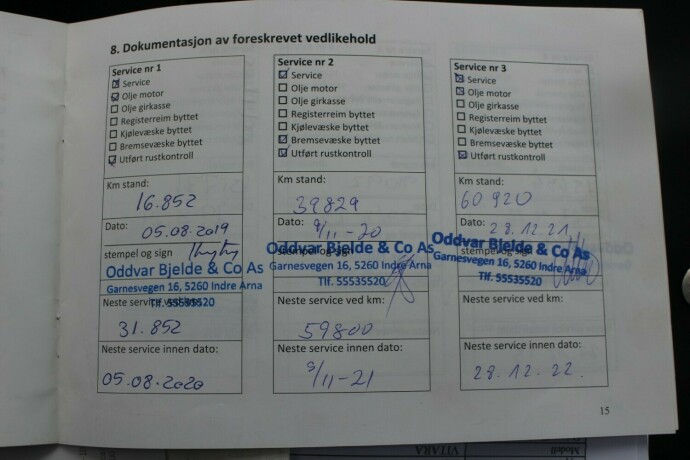 8. Dokumentasjon av foreskrevet vedlikehold
Service nr 1
Service
Olje motor
Olje girkasse
Registerreim byttet
Kjølevæske byttet
Bremsevæske byttet
Utført rustkontroll
Km stand:
16.852
Dato:
05.08.2019
stempel og sign
Oddvar Bjelde & Co As
Garnesvegen 16, 5260 Indre Arna
Tlf. 55535520
Neste service
31.852
Neste service innen dato:
05.08.2020
Service nr 2
Service
Olje motor
Olje girkasse
Registerreim byttet
Kjølevæske byttet
Bremsevæske byttet
Utført rustkontroll
Km stand:
39829
Dato:
9/11-20
stempel og sign
Oddvar Bjelde & Co As
Garnesvegen 16, 5260 Indre Arna
Tlf. 55535520
Neste service ved km:
59800
Neste service innen dato:
9/11-21
Service nr 3
Service
Olje motor
Olje girkasse
Registerreim byttet
Kjølevæske byttet
Bremsevæske byttet
Utført rustkontroll
Km stand:
60920
Dato:
28.12.21
Oddvar Bjelde & Co As
Garnesvegen 16, 5260 Indre Arna
stempel og sign
Tlf. 55535520
Neste service ved km:
Neste service innen dato:
28.12.22.
15
VITARA
Modell